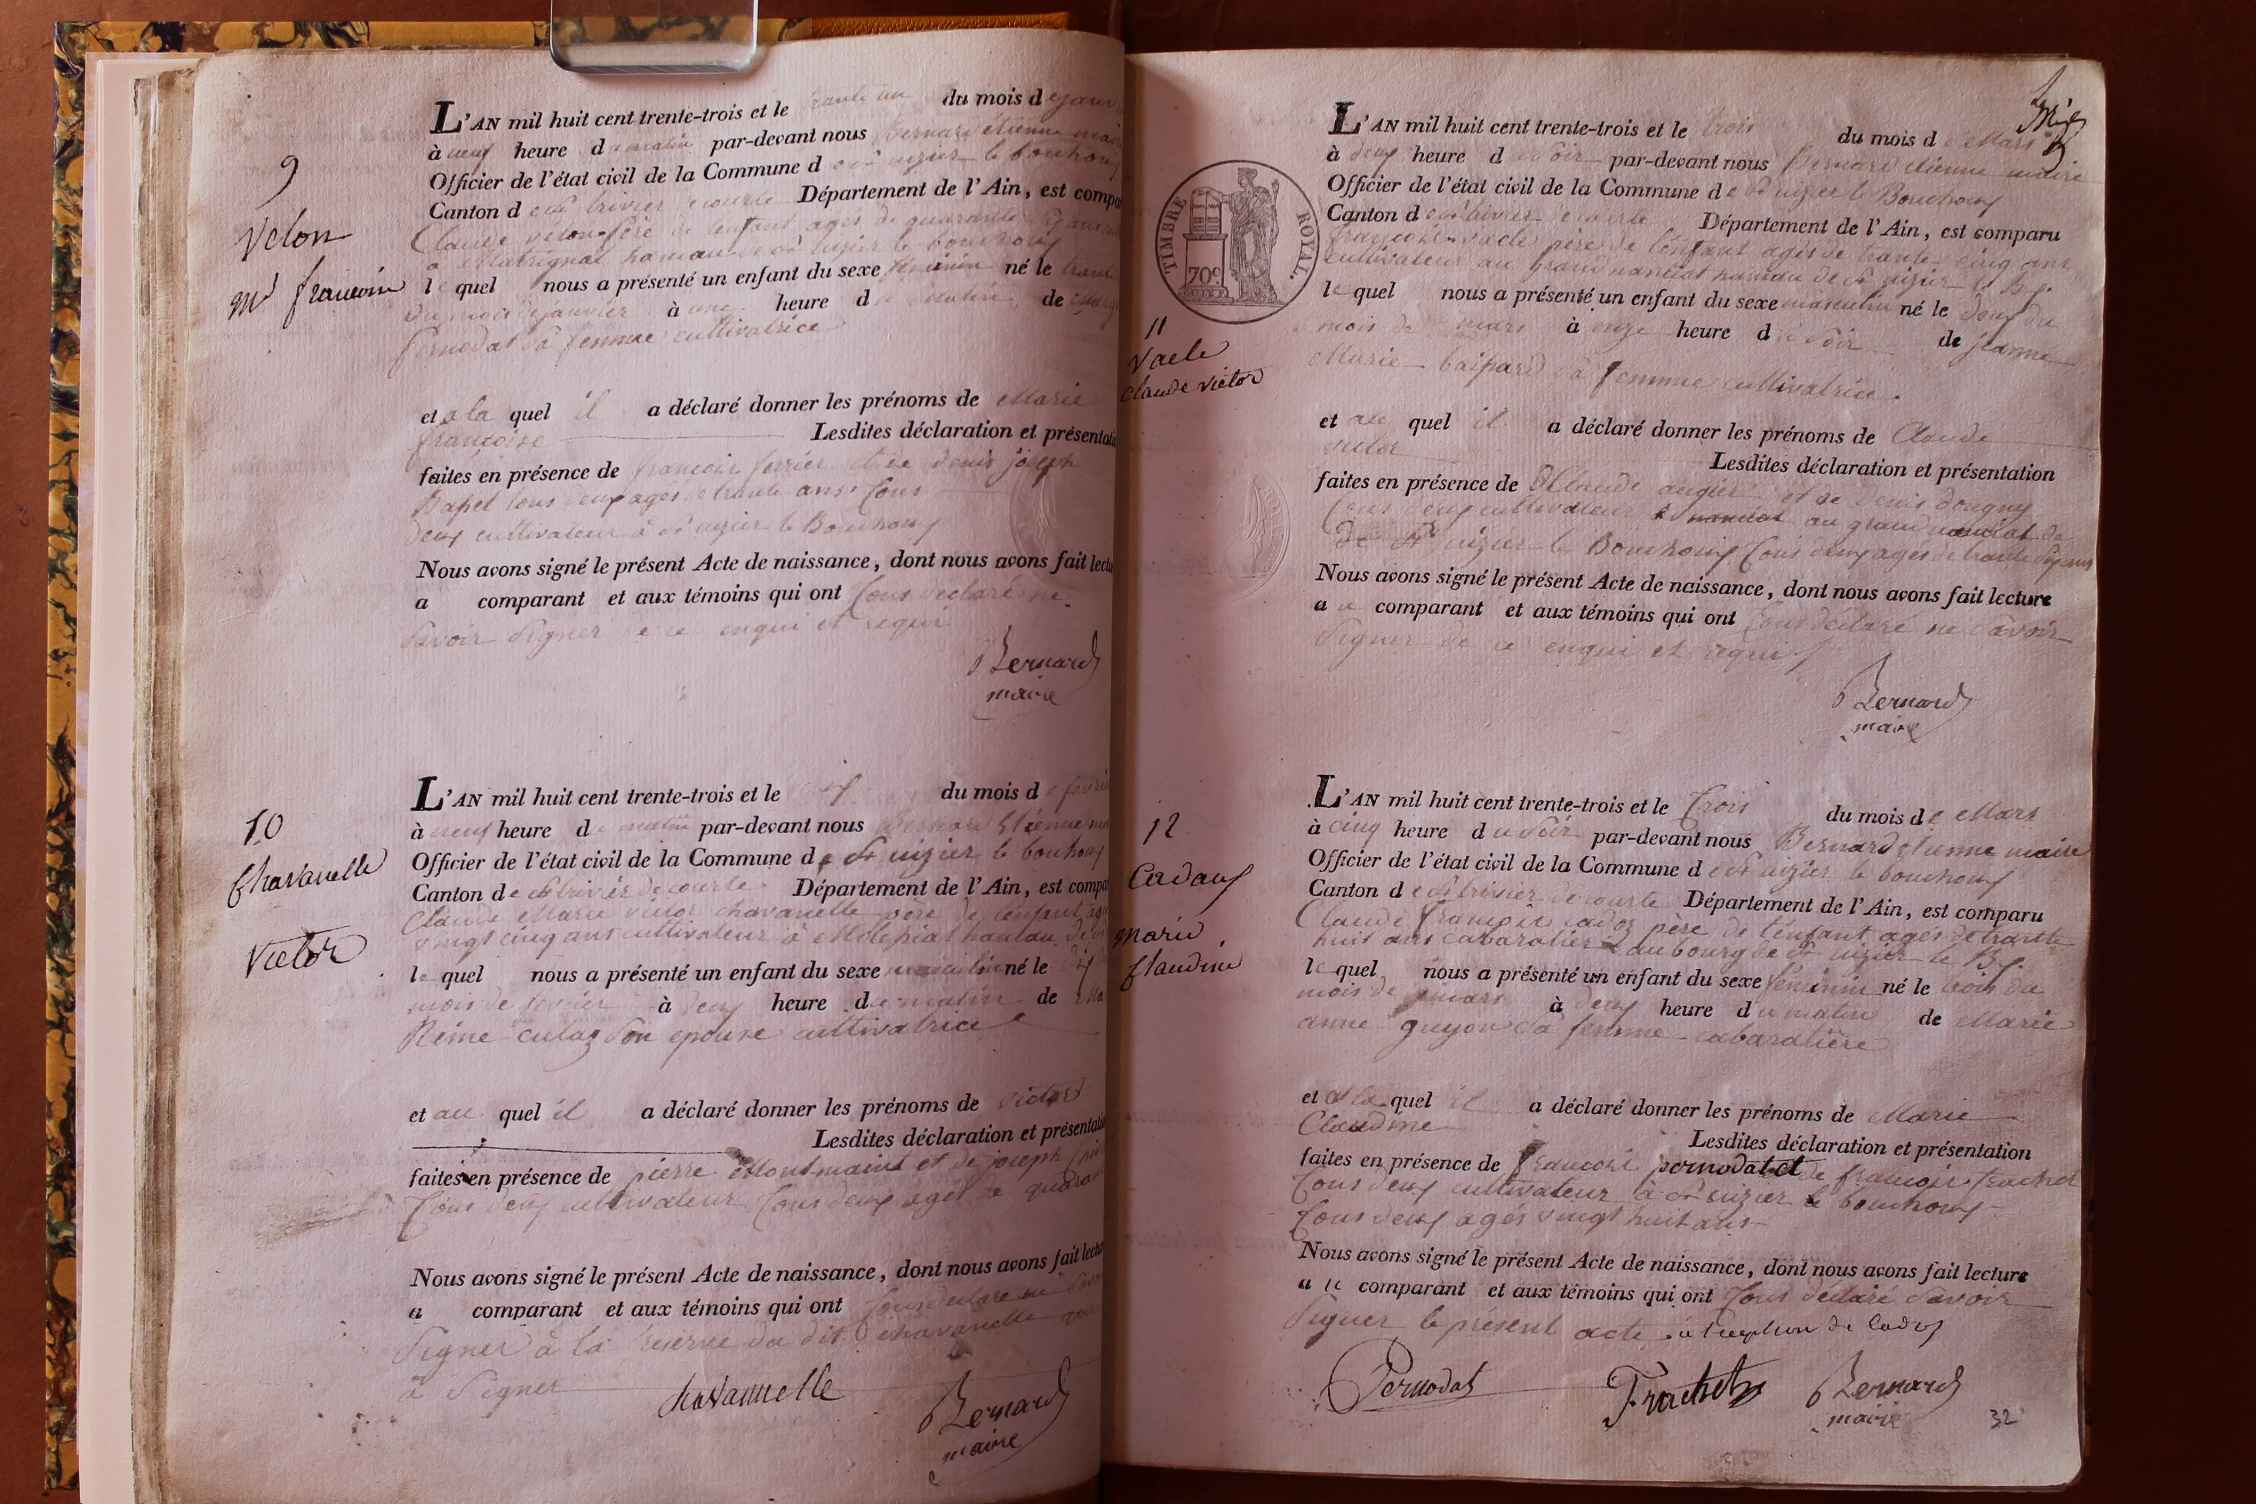 9
Velon
Mie francoise
L'AN mil huit cent trente-trois et le trante un du mois de janv
à neuf heure du matin par-devant nous Bernard étienne mai
Officier de l'état civil de la Commune de st nizier le bouchoux
Canton de st trivier de courte Département de l'Ain, est compa
Claude velon père de l'enfant agés de quarante
a hamau de st nizier le bouchoux
le quel nous a présenté un enfant du sexe féminin né le trante
du mois de janvier à une heure du matin de
pernodat sa femme cultivatrice
et a la quel il a déclaré donner les prénoms de Marie
francoise Lesdites déclaration et présentati
faites en présence de francois ferrier et de denis joseph
tous deux agés de trante ans tous
deux cultivateur à st nizier le Bouchoux
Nous avons signé le présent Acte de naissance, dont nous avons fait lectu
a comparant et aux témoins qui ont tous déclaré ne
savoir signer de ce enqui et requi
Bernard
maire
10
Chavanelle
Victor
L'AN mil huit cent trente-trois et le dix du mois de fevrie
à neuf heure du matin par-devant nous Bernard Etienne ma
Officier de l'état civil de la Commune de st nizier le bouchoux
Canton de st trivier de courte Département de l'Ain, est compa
Claude Marie victor chavanelle père de l'enfant agé
vingt cinq ans cultivateur à hamau de
le quel nous a présenté un enfant du sexe masculin né le dix
mois de fevrier à deux heure du matin de Ma
Reine culaz son epouse cultivatrice
et au quel il a déclaré donner les prénoms de victor
Lesdites déclaration et présentati
faites en présence de pierre Montmain et de joseph
tous deux cultivateur tous deux agés de quaran
Nous avons signé le présent Acte de naissance, dont nous avons fait lectu
a comparant et aux témoins qui ont tous déclaré ne savoi
signer à la réserve du dit chavanelle
à signer
chavannelle
Bernard
maire
TIMBRE ROYAL.
70c
11
Vacle
Claude victor
L'AN mil huit cent trente-trois et le trois du mois de Mars
à deux heure du soir par-devant nous Bernard étienne maire
Officier de l'état civil de la Commune de st nizier le Bouchoux
Canton de st trivier de courte Département de l'Ain, est comparu
francois vacle père de l'enfant agés de trante cinq ans
cultivateur au grand nanciat hamau de st nizier le B.
le quel nous a présenté un enfant du sexe masculin né le deux du
mois de mars à onze heure du soir de jeanne
Marie Gaspard sa femme cultivatrice.
et au quel il a déclaré donner les prénoms de Claude
victor Lesdites déclaration et présentation
faites en présence de Claude augier et de Denis dougny
tous deux cultivateur a nanciat au grand nanciat de
de st nizier le Bouchoux tous deux agés de trante six ans
Nous avons signé le présent Acte de naissance, dont nous avons fait lecture
a u comparant et aux témoins qui ont tous déclaré ne savoir
signer de ce enqui et requi
Bernard
maire
12
Cadoux
Marie
Claudine
L'AN mil huit cent trente-trois et le trois du mois de Mars
à cinq heure du soir par-devant nous Bernard étienne maire
Officier de l'état civil de la Commune de st nizier le bouchoux
Canton de st trivier de courte Département de l'Ain, est comparu
Claude francois cadoz père de l'enfant agés de trante
huit ans cabaratier au bourg de st nizier le B.
le quel nous a présenté un enfant du sexe féminin né le trois du
mois de mars à deux heure du matin de Marie
anne guyon sa femme cabaratière
et a la quel il a déclaré donner les prénoms de Marie
Claudine Lesdites déclaration et présentation
faites en présence de francois pernodat et de francois frachet
tous deux cultivateur à st nizier le bouchoux
tous deux agés vingt huit ans
Nous avons signé le présent Acte de naissance, dont nous avons fait lecture
a u comparant et aux témoins qui ont tous déclaré savoir
signer le présent acte. a l'exception de Cadox
Pernodat
Frachet
Bernard
maire
32